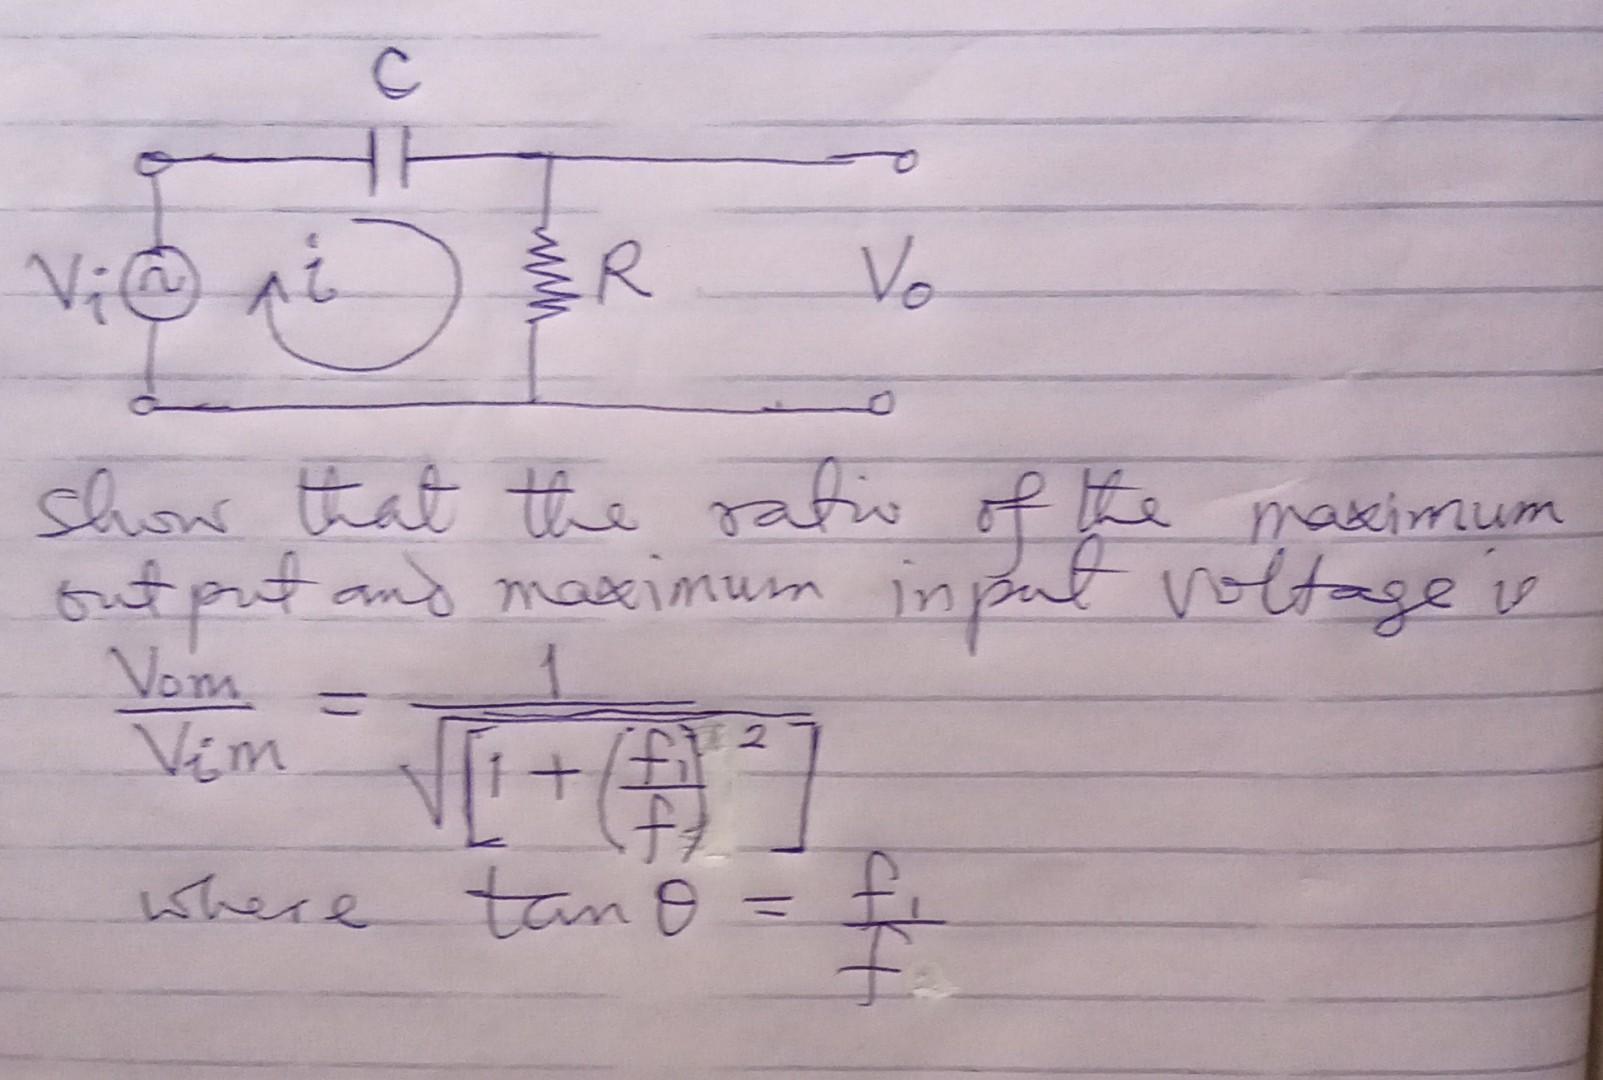 C
Vi
i
R
Vo
show that the ratio of the maximum
output and maximum input voltage is
Vom/Vim = 1/√[1 + (f₁/f)²]
where tan θ = f₁/f